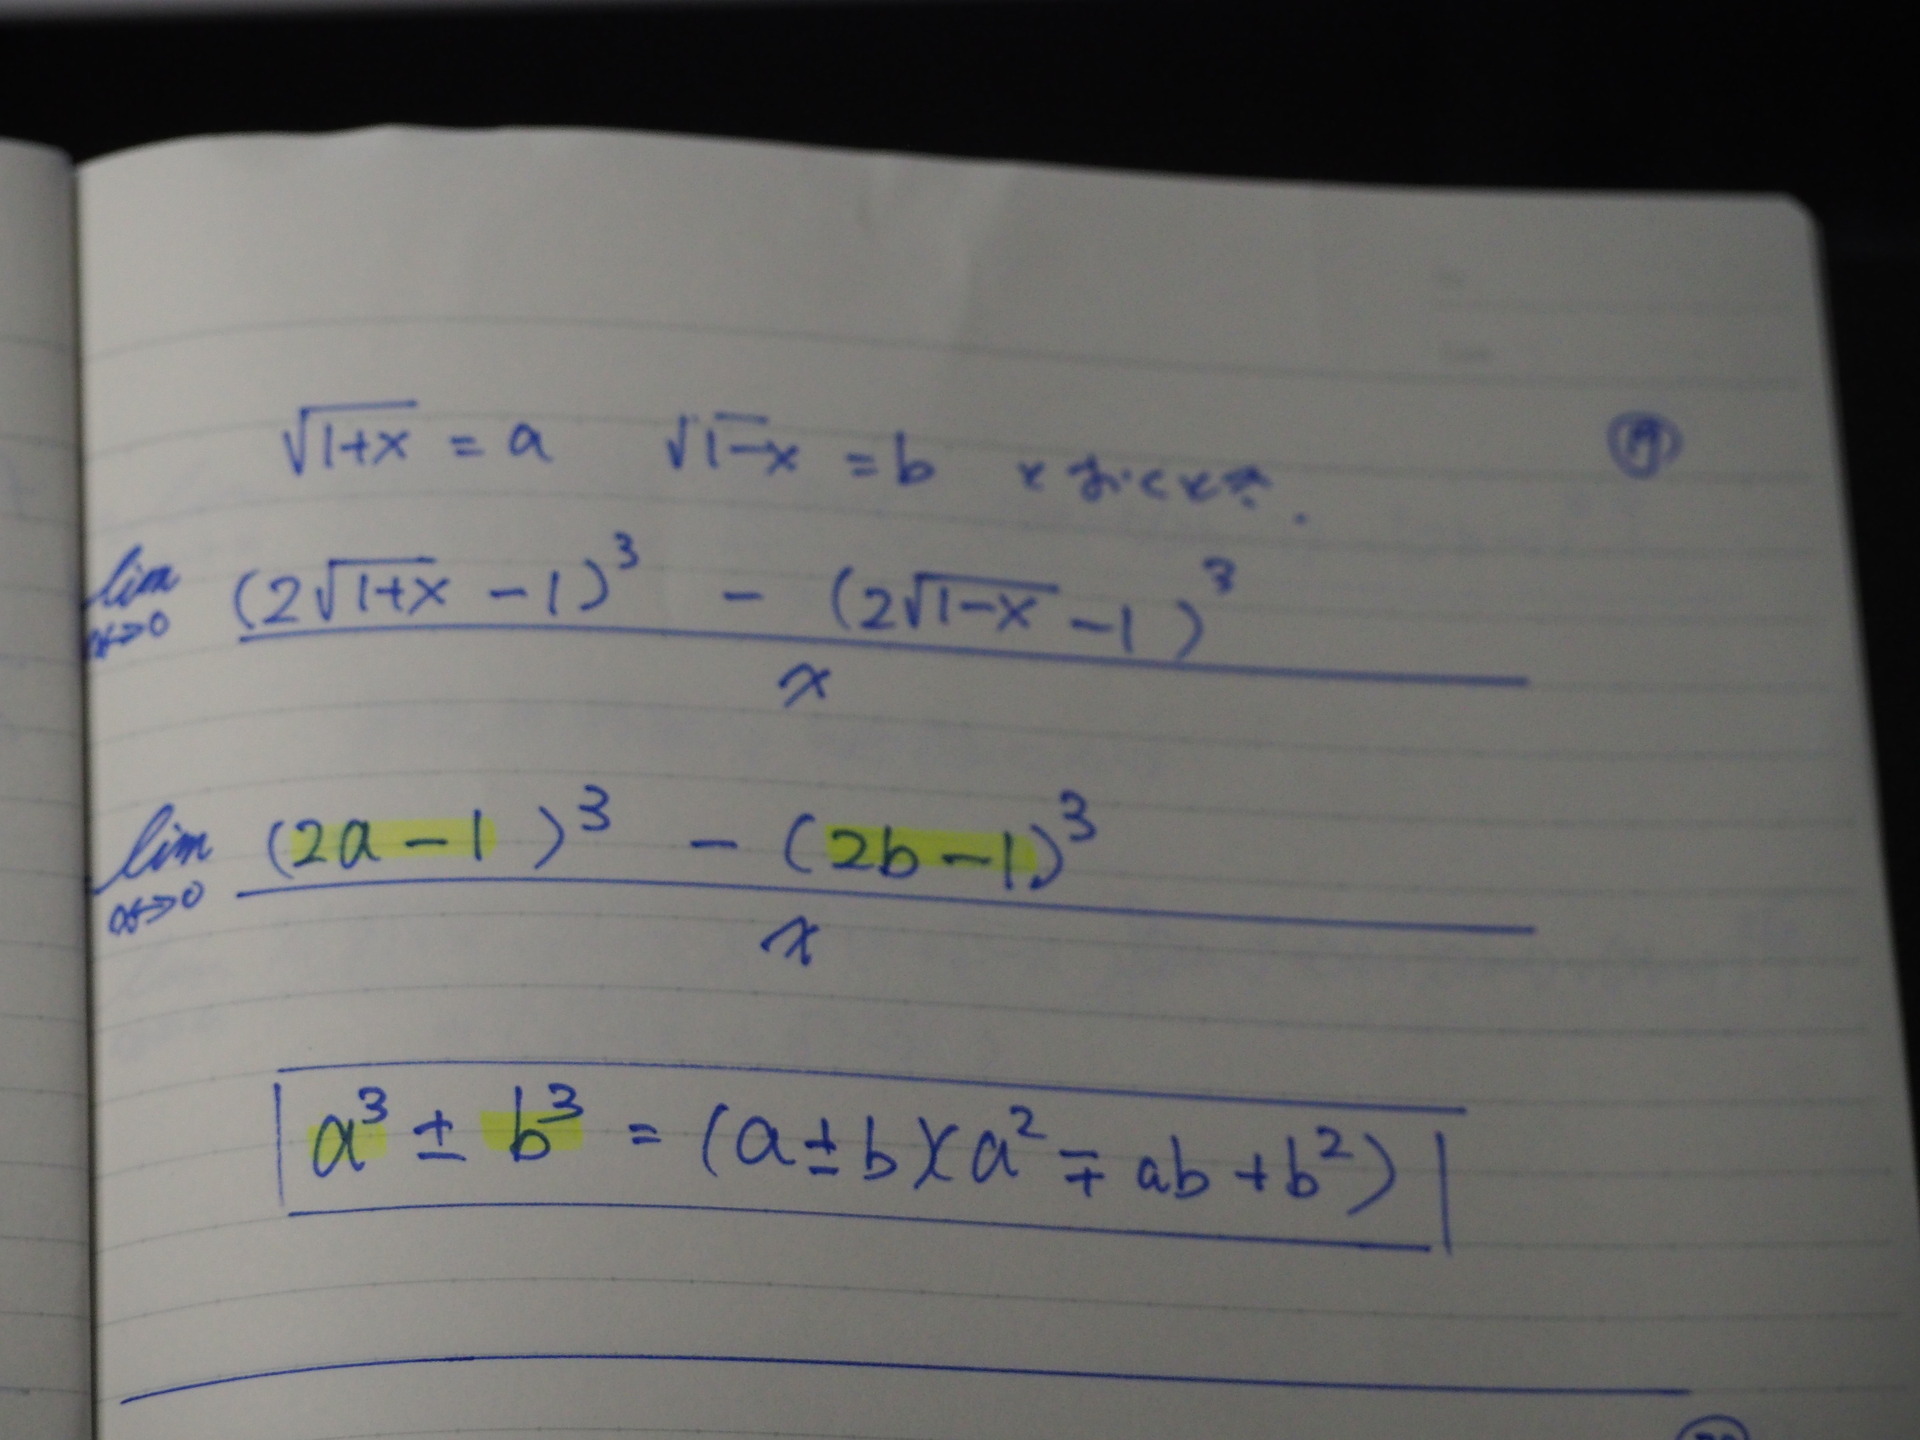 √1+x = a √1-x = b とおくとき. ⑲
lim x→0 (2√1+x - 1)³ - (2√1-x - 1)³ / x
lim x→0 (2a-1)³ - (2b-1)³ / x
a³ ± b³ = (a±b)(a² ∓ ab + b²)